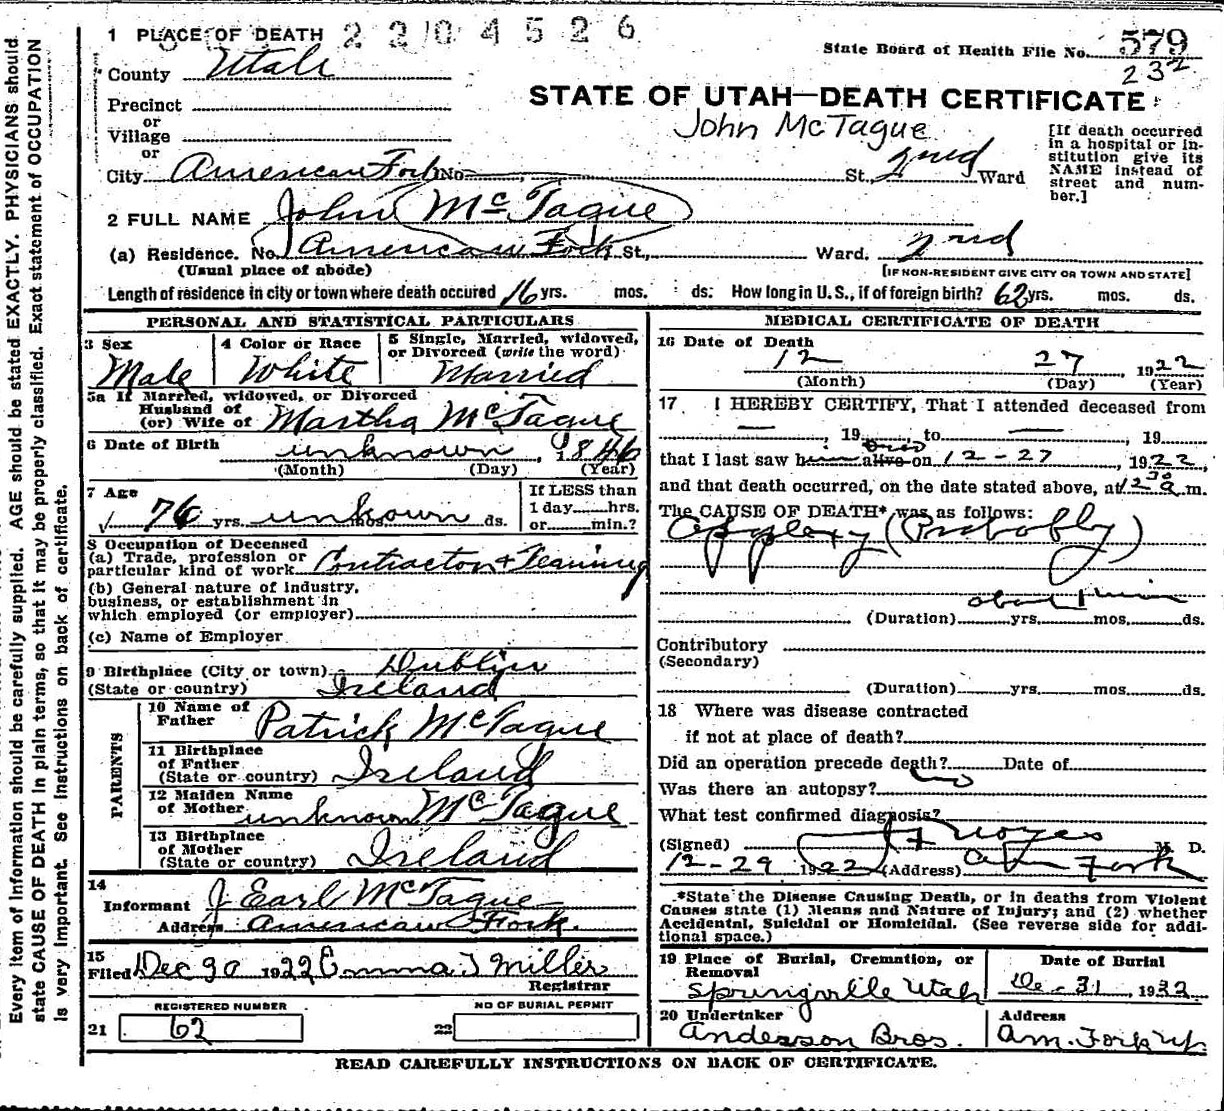 1 PLACE OF DEATH 2204526
State Board of Health File No. 579
232
County Utah
STATE OF UTAH—DEATH CERTIFICATE
Precinct
or
Village
or
John McTague
[If death occurred in a hospital or institution give its NAME instead of street and number.]
City American Fork No. St., 2nd Ward
2 FULL NAME John McTague
(a) Residence. No. American Fork St., Ward. 2nd
(Usual place of abode) [IF NON-RESIDENT GIVE CITY OR TOWN AND STATE]
Length of residence in city or town where death occured 16 yrs. mos. ds. How long in U. S., if of foreign birth? 62 yrs. mos. ds.
PERSONAL AND STATISTICAL PARTICULARS
3 Sex Male
4 Color or Race White
5 Single, Married, widowed, or Divorced (write the word) Married
5a If Married, widowed, or Divorced
Husband of
(or) Wife of Martha McTague
6 Date of Birth unknown, 1846
(Month) (Day) (Year)
7 Age 76 yrs. unknown mos. ds.
If LESS than
1 day hrs.
or min.?
8 Occupation of Deceased
(a) Trade, profession or
particular kind of work Contractor & Teaming
(b) General nature of industry,
business, or establishment in
which employed (or employer)
(c) Name of Employer
9 Birthplace (City or town) Dublin
(State or country) Ireland
PARENTS
10 Name of Father Patrick McTague
11 Birthplace
of Father
(State or country) Ireland
12 Maiden Name
of Mother unknown McTague
13 Birthplace
of Mother
(State or country) Ireland
14
Informant J Earl McTague
Address American Fork.
15
Filed Dec 30 1922 Emma J Miller
Registrar
REGISTERED NUMBER NO OF BURIAL PERMIT
21 62 22
MEDICAL CERTIFICATE OF DEATH
16 Date of Death
12 27 1922
(Month) (Day) (Year)
17 I HEREBY CERTIFY, That I attended deceased from
— , 19 to — , 19
that I last saw him alive on 12-27, 1922,
and that death occurred, on the date stated above, at 12 30 a m.
The CAUSE OF DEATH* was as follows:
Apoplexy (Probably)
(Duration) yrs. mos. ds.
Contributory
(Secondary)
(Duration) yrs. mos. ds.
18 Where was disease contracted
if not at place of death?
Did an operation precede death? Date of
Was there an autopsy? no
What test confirmed diagnosis?
(Signed) Noyes M. D.
12-29 1922 (Address) Am Fork
*State the Disease Causing Death, or in deaths from Violent
Causes state (1) Means and Nature of Injury; and (2) whether
Accidental, Suicidal or Homicidal. (See reverse side for additional space.)
19 Place of Burial, Cremation, or
Removal
Springville Utah
Date of Burial
De-31, 1922
20 Undertaker
Anderson Bros.
Address
Am. Fork Ut.
READ CAREFULLY INSTRUCTIONS ON BACK OF CERTIFICATE.
Every item of information should be carefully supplied. AGE should be stated EXACTLY. PHYSICIANS should
state CAUSE OF DEATH in plain terms, so that it may be properly classified. Exact statement of OCCUPATION
is very important. See instructions on back of certificate.